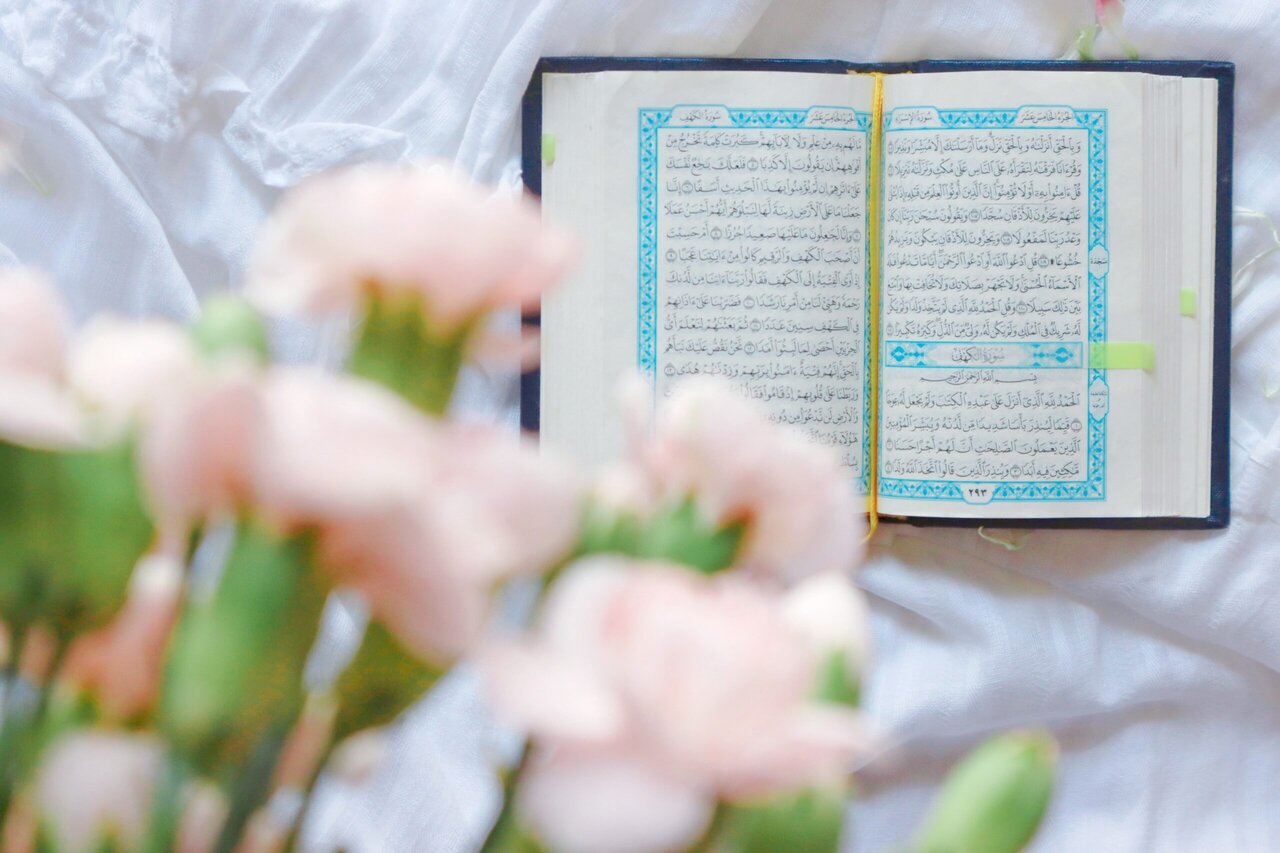 الجزء الخامس عشر سورة الإسراء
وَبِٱلۡحَقِّ أَنزَلۡنَٰهُ وَبِٱلۡحَقِّ نَزَلَۗ وَمَآ أَرۡسَلۡنَٰكَ إِلَّا مُبَشِّرٗا وَنَذِيرٗا ١٠٥
وَقُرۡءَانٗا فَرَقۡنَٰهُ لِتَقۡرَأَهُۥ عَلَى ٱلنَّاسِ عَلَىٰ مُكۡثٖ وَنَزَّلۡنَٰهُ تَنزِيلٗا ١٠٦
قُلۡ ءَامِنُواْ بِهِۦٓ أَوۡ لَا تُؤۡمِنُوٓاْۚ إِنَّ ٱلَّذِينَ أُوتُواْ ٱلۡعِلۡمَ مِن قَبۡلِهِۦٓ إِذَا يُتۡلَىٰ
عَلَيۡهِمۡ يَخِرُّونَۤ لِلۡأَذۡقَانِۤ سُجَّدٗاۤ ١٠٧ وَيَقُولُونَ سُبۡحَٰنَ رَبِّنَآ إِن كَانَ
وَعۡدُ رَبِّنَا لَمَفۡعُولٗا ١٠٨ وَيَخِرُّونَ لِلۡأَذۡقَانِ يَبۡكُونَ وَيَزِيدُهُمۡ
خُشُوعٗا۩ ١٠٩ قُلِ ٱدۡعُواْ ٱللَّهَ أَوِ ٱدۡعُواْ ٱلرَّحۡمَٰنَۖ أَيّٗا مَّا تَدۡعُواْ فَلَهُ
سجدة
ٱلۡأَسۡمَآءُ ٱلۡحُسۡنَىٰۚ وَلَا تَجۡهَرۡ بِصَلَاتِكَ وَلَا تُخَافِتۡ بِهَا وَٱبۡتَغِ
بَيۡنَ ذَٰلِكَ سَبِيلٗا ١١٠ وَقُلِ ٱلۡحَمۡدُ لِلَّهِ ٱلَّذِي لَمۡ يَتَّخِذۡ وَلَدٗا وَلَمۡ يَكُن
لَّهُۥ شَرِيكٞ فِي ٱلۡمُلۡكِ وَلَمۡ يَكُن لَّهُۥ وَلِيّٞ مِّنَ ٱلذُّلِّۖ وَكَبِّرۡهُ تَكۡبِيرَۢا ١١١
سورة الكهف
بِسۡمِ ٱللَّهِ ٱلرَّحۡمَٰنِ ٱلرَّحِيمِ
ٱلۡحَمۡدُ لِلَّهِ ٱلَّذِيٓ أَنزَلَ عَلَىٰ عَبۡدِهِ ٱلۡكِتَٰبَ وَلَمۡ يَجۡعَل لَّهُۥ عِوَجَاۜ
١ قَيِّمٗا لِّيُنذِرَ بَأۡسٗا شَدِيدٗا مِّن لَّدُنۡهُ وَيُبَشِّرَ ٱلۡمُؤۡمِنِينَ
ٱلَّذِينَ يَعۡمَلُونَ ٱلصَّٰلِحَٰتِ أَنَّ لَهُمۡ أَجۡرًا حَسَنٗا ٢
مَّٰكِثِينَ فِيهِ أَبَدٗا ٣ وَيُنذِرَ ٱلَّذِينَ قَالُواْ ٱتَّخَذَ ٱللَّهُ وَلَدٗا ٤
٢٩٣
الجزء الخامس عشر سورة الكهف
مَّا لَهُم بِهِۦ مِنۡ عِلۡمٖ وَلَا لِأٓبَآئِهِمۡۚ كَبُرَتۡ كَلِمَةٗ تَخۡرُجُ مِنۡ
أَفۡوَٰهِهِمۡۚ إِن يَقُولُونَ إِلَّا كَذِبٗا ٥ فَلَعَلَّكَ بَٰخِعٞ نَّفۡسَكَ
عَلَىٰٓ ءَاثَٰرِهِمۡ إِن لَّمۡ يُؤۡمِنُواْ بِهَٰذَا ٱلۡحَدِيثِ أَسَفًا ٦ إِنَّا
جَعَلۡنَا مَا عَلَى ٱلۡأَرۡضِ زِينَةٗ لَّهَا لِنَبۡلُوَهُمۡ أَيُّهُمۡ أَحۡسَنُ عَمَلٗا
٧ وَإِنَّا لَجَٰعِلُونَ مَا عَلَيۡهَا صَعِيدٗا جُرُزًا ٨ أَمۡ حَسِبۡتَ
أَنَّ أَصۡحَٰبَ ٱلۡكَهۡفِ وَٱلرَّقِيمِ كَانُواْ مِنۡ ءَايَٰتِنَا عَجَبًا ٩
إِذۡ أَوَى ٱلۡفِتۡيَةُ إِلَى ٱلۡكَهۡفِ فَقَالُواْ رَبَّنَآ ءَاتِنَا مِن لَّدُنكَ
رَحۡمَةٗ وَهَيِّئۡ لَنَا مِنۡ أَمۡرِنَا رَشَدٗا ١٠ فَضَرَبۡنَا عَلَىٰٓ ءَاذَانِهِمۡ
فِي ٱلۡكَهۡفِ سِنِينَ عَدَدٗا ١١ ثُمَّ بَعَثۡنَٰهُمۡ لِنَعۡلَمَ أَيُّ
ٱلۡحِزۡبَيۡنِ أَحۡصَىٰ لِمَا لَبِثُوٓاْ أَمَدٗا ١٢ نَّحۡنُ نَقُصُّ عَلَيۡكَ نَبَأَهُم
بِٱلۡحَقِّۚ إِنَّهُمۡ فِتۡيَةٌ ءَامَنُواْ بِرَبِّهِمۡ وَزِدۡنَٰهُمۡ هُدٗى ١٣
وَرَبَطۡنَا عَلَىٰ قُلُوبِهِمۡ إِذۡ قَامُواْ فَقَالُواْ
وَٱلۡأَرۡضِ لَن نَّدۡعُوَاْ مِن
هَٰٓؤُلَآءِ قَوۡمُنَا